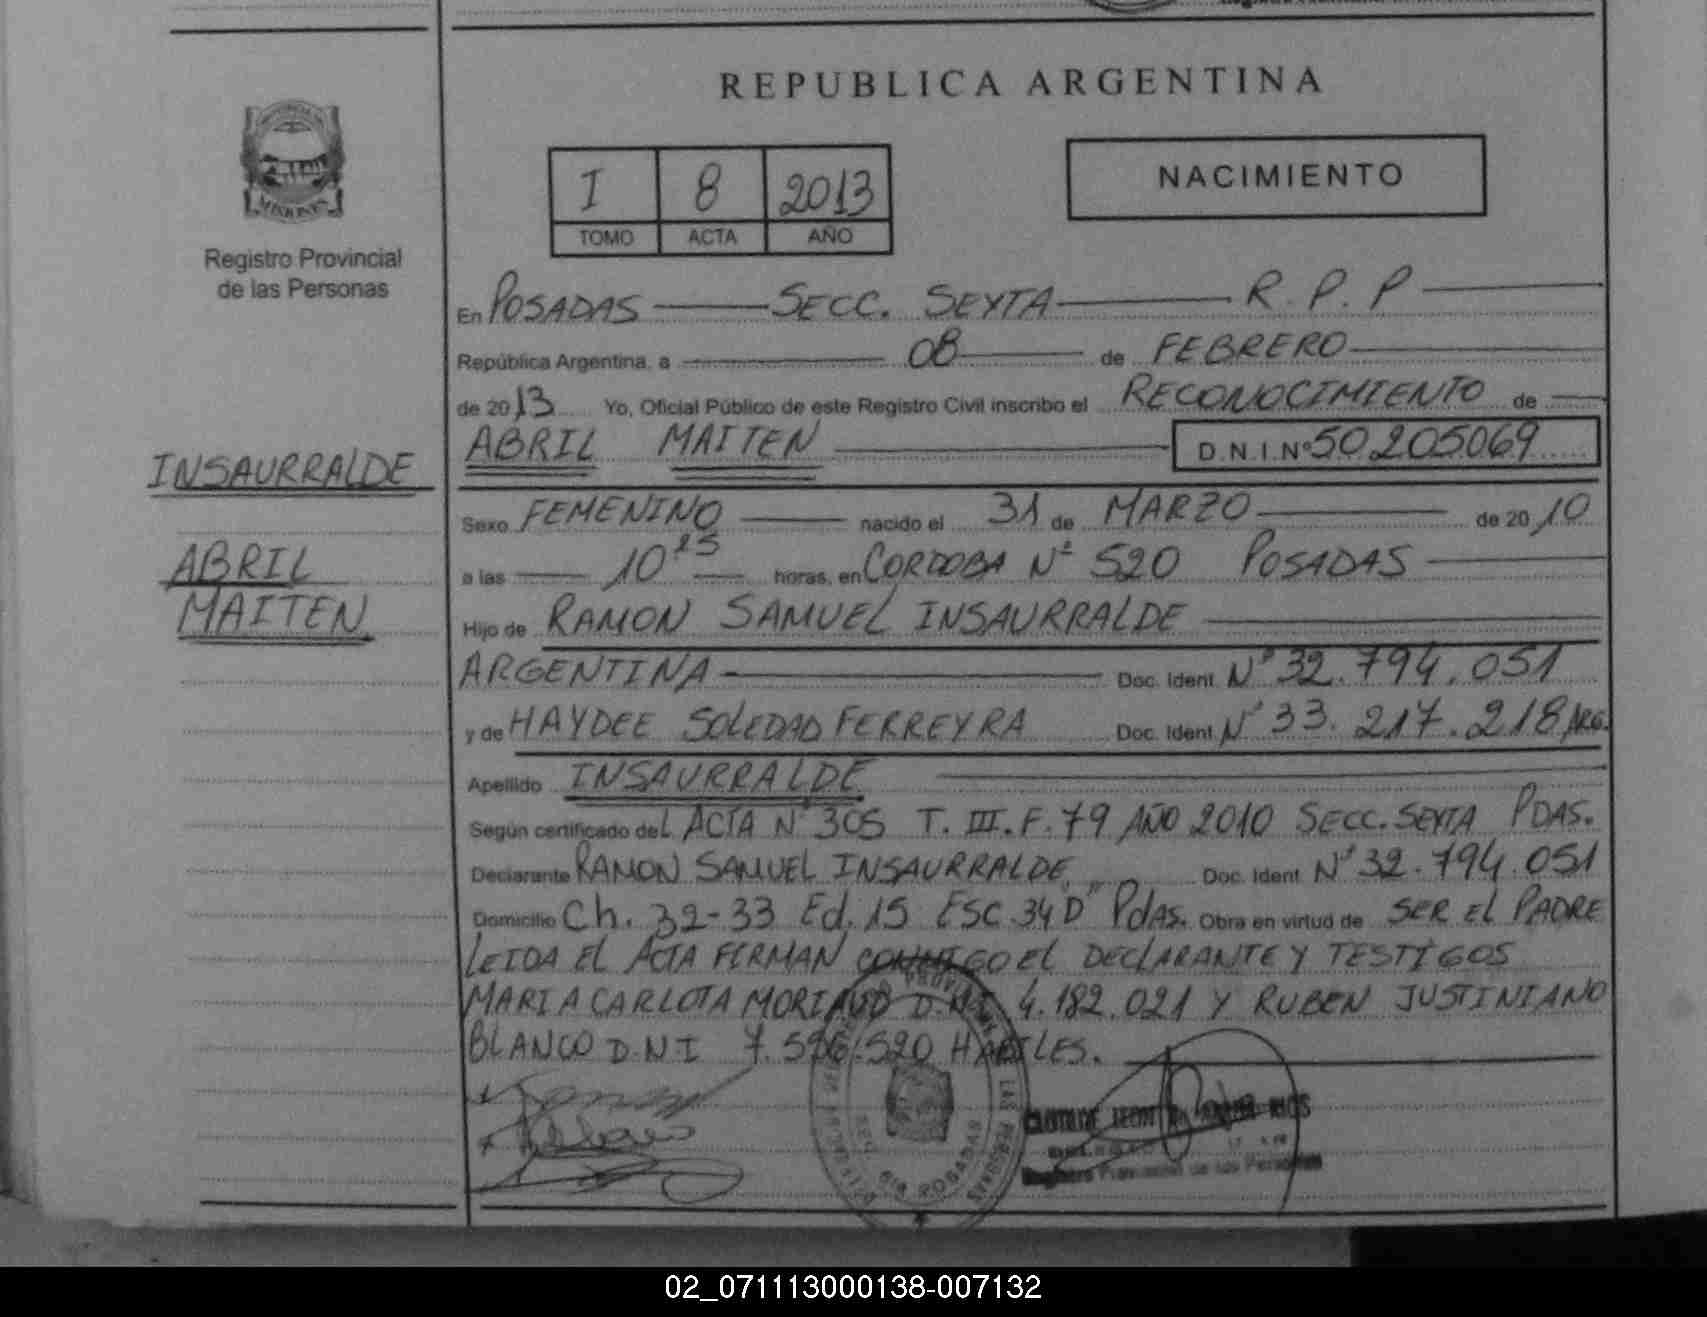 REPUBLICA ARGENTINA
MISIONES
Registro Provincial
de las Personas
I 8 2013
TOMO ACTA AÑO
NACIMIENTO
En POSADAS SECC. SEXTA R. P. P
República Argentina, a 08 de FEBRERO
de 2013 Yo, Oficial Público de este Registro Civil inscribo el RECONOCIMIENTO de
INSAURRALDE
ABRIL MAITEN D.N.I.Nº 50.205.069
Sexo FEMENINO nacido el 31 de MARZO de 2010
ABRIL
MAITEN
a las 10 25 horas, en CORDOBA Nº 520 POSADAS
Hijo de RAMON SAMUEL INSAURRALDE
ARGENTINA Doc. Ident. Nº 32.794.051
y de HAYDEE SOLEDAD FERREYRA Doc. Ident. Nº 33.217.218 ARG.
Apellido INSAURRALDE
Según certificado del ACTA Nº 305 T. III. F. 79 AÑO 2010 SECC. SEXTA PDAS.
Declarante RAMON SAMUEL INSAURRALDE Doc. Ident. Nº 32.794.051
Domicilio Ch. 32-33 Ed. 15 Esc. 34 "D" Pdas. Obra en virtud de SER El PADRE
LEIDA El ACTA FIRMAN CONMIGO El DEClARANTE Y TESTIGOS
MARIA CARLOTA D.N.I. 4.182.021 Y RUBEN JUSTINIANO
BLANCO D.N.I 7.596.520 HABILES.
POSADAS
RIOS
Registro Provincial de las Personas
02_071113000138-007132